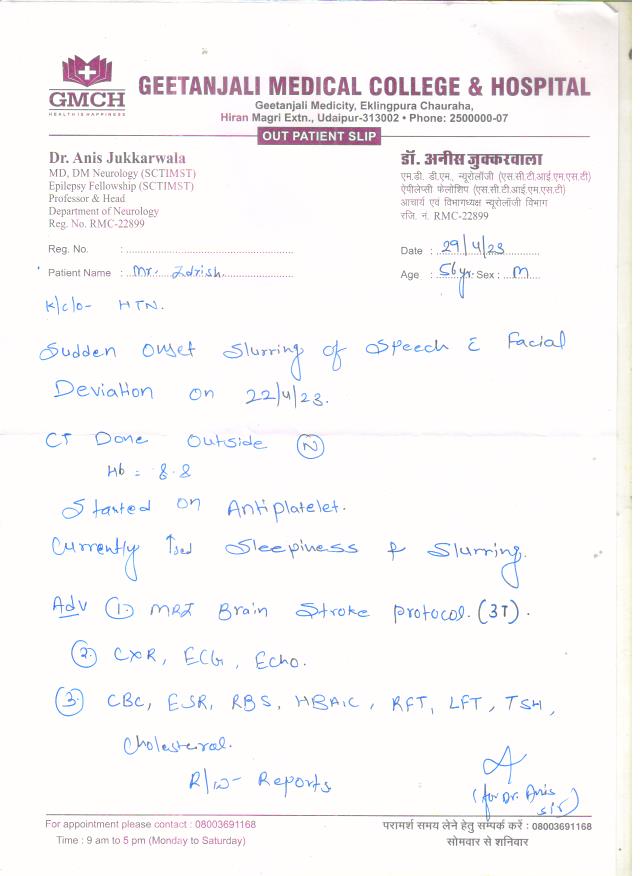 GMCH
HEALTH IS HAPPINESS
GEETANJALI MEDICAL COLLEGE & HOSPITAL
Geetanjali Medicity, Eklingpura Chauraha,
Hiran Magri Extn., Udaipur-313002 • Phone: 2500000-07
OUT PATIENT SLIP
Dr. Anis Jukkarwala
MD, DM Neurology (SCTIMST)
Epilepsy Fellowship (SCTIMST)
Professor & Head
Department of Neurology
Reg. No. RMC-22899
डॉ. अनीस जुक्करवाला
एम.डी. डी.एम., न्यूरोलॉजी (एस.सी.टी.आई.एम.एस.टी)
ऐपीलेप्सी फेलोशिप (एस.सी.टी.आई.एम.एस.टी)
आचार्य एवं विभागध्यक्ष न्यूरोलॉजी विभाग
रजि. नं. RMC-22899
Reg. No. :
Date : 29/4/23
Patient Name : Mr. Idrish
Age : 56 yr. Sex : M
K/c/o- HTN.
Sudden onset Slurring of Speech c̄ Facial
Deviation on 22/4/23.
CT Done Outside (N)
Hb = 8.8
Started on Antiplatelet.
Currently ↑sed Sleepiness & Slurring.
Adv (1) MRI Brain Stroke protocol. (3T).
(2) CXR, ECG, Echo.
(3) CBC, ESR, RBS, HBA1C, RFT, LFT, TSH,
Cholesteral.
R/w- Reports
(for Dr. Anis
sir)
For appointment please contact : 08003691168
Time : 9 am to 5 pm (Monday to Saturday)
परामर्श समय लेने हेतु सम्पर्क करें : 08003691168
सोमवार से शनिवार